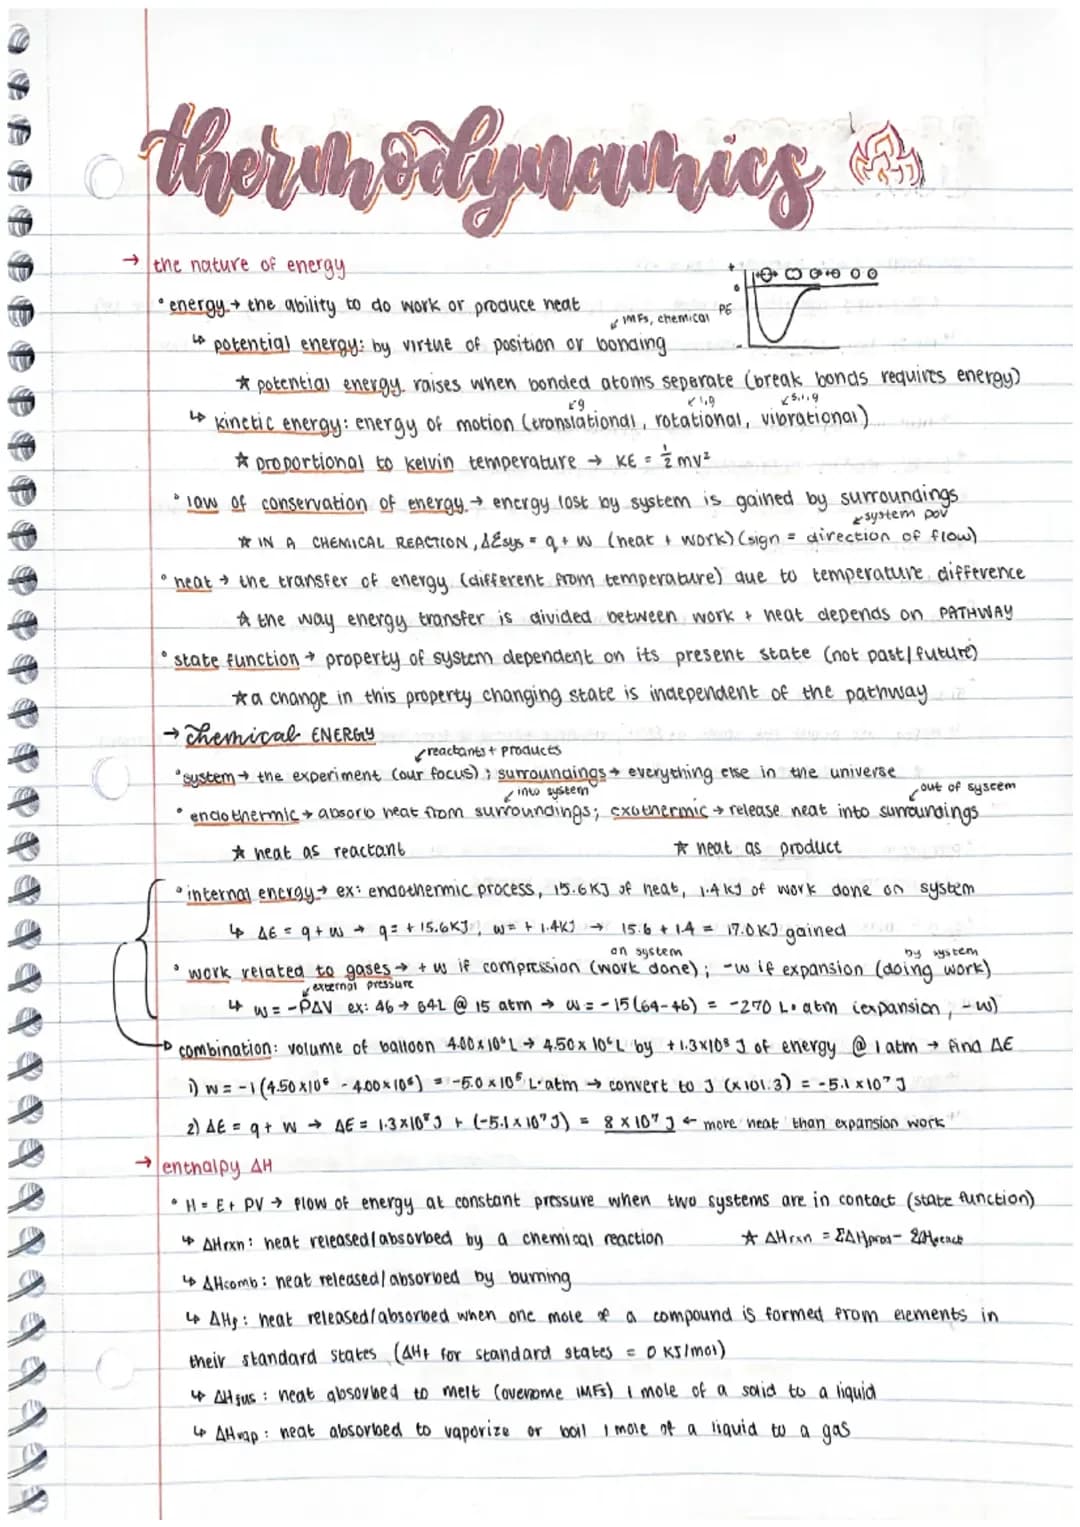 thermodynamics
→ the nature of energy
° energy → the ability to do work or produce heat
↙ IMFs, chemical
+
0
PE
-
↳ potential energy: by virtue of position or bonding
★ potential energy raises when bonded atoms seperate (break bonds requires energy)
↙g ↙l,g ↙s,l,g
↳ kinetic energy: energy of motion (translational, rotational, vibrational)
★ proportional to kelvin temperature → KE = ½ mv²
° law of conservation of energy → energy lost by system is gained by surroundings
↙ system pov
★ IN A CHEMICAL REACTION, ΔEsys = q + w (heat + work) (sign = direction of flow)
° heat → the transfer of energy (different from temperature) due to temperature difference
★ the way energy transfer is divided between work + heat depends on PATHWAY
° state function → property of system dependent on its present state (not past/future)
★ a change in this property changing state is independent of the pathway
→ Chemical ENERGY
↙ reactants + products
° system → the experiment (our focus); surroundings → everything else in the universe
↙ into system ↙ out of system
° endothermic → absorb heat from surroundings; exothermic → release heat into surroundings
★ heat as reactant ★ heat as product
° internal energy → ex: endothermic process, 15.6 KJ of heat, 1.4 kJ of work done on system
↳ ΔE = q + w → q = +15.6KJ, w = +1.4KJ → 15.6 + 1.4 = 17.0 KJ gained
on system by system
° work related to gases → +w if compression (work done); -w if expansion (doing work)
↙ external pressure
↳ w = -PΔV ex: 46 → 64L @ 15 atm → w = -15(64-46) = -270 L·atm (expansion, -w)
combination: volume of balloon 4.00x10⁶L → 4.50x10⁶L by +1.3x10⁸ J of energy @ 1 atm → find ΔE
1) w = -1(4.50x10⁶ - 4.00x10⁶) = -5.0x10⁵ L·atm → convert to J (x101.3) = -5.1x10⁷ J
2) ΔE = q + w → ΔE = 1.3x10⁸ J + (-5.1x10⁷ J) = 8x10⁷ J ← more heat than expansion work
→ enthalpy ΔH
° H = E + PV → flow of energy at constant pressure when two systems are in contact (state function)
↳ ΔHrxn: heat released/absorbed by a chemical reaction ★ ΔHrxn = ΣΔHprod - ΣΔHreact
↳ ΔHcomb: heat released/absorbed by burning
↳ ΔHf: heat released/absorbed when one mole of a compound is formed from elements in
their standard states (ΔHf for standard states = 0 KJ/mol)
↳ ΔHfus: heat absorbed to melt (overcome IMFs) 1 mole of a solid to a liquid
↳ ΔHvap: heat absorbed to vaporize or boil 1 mole of a liquid to a gas